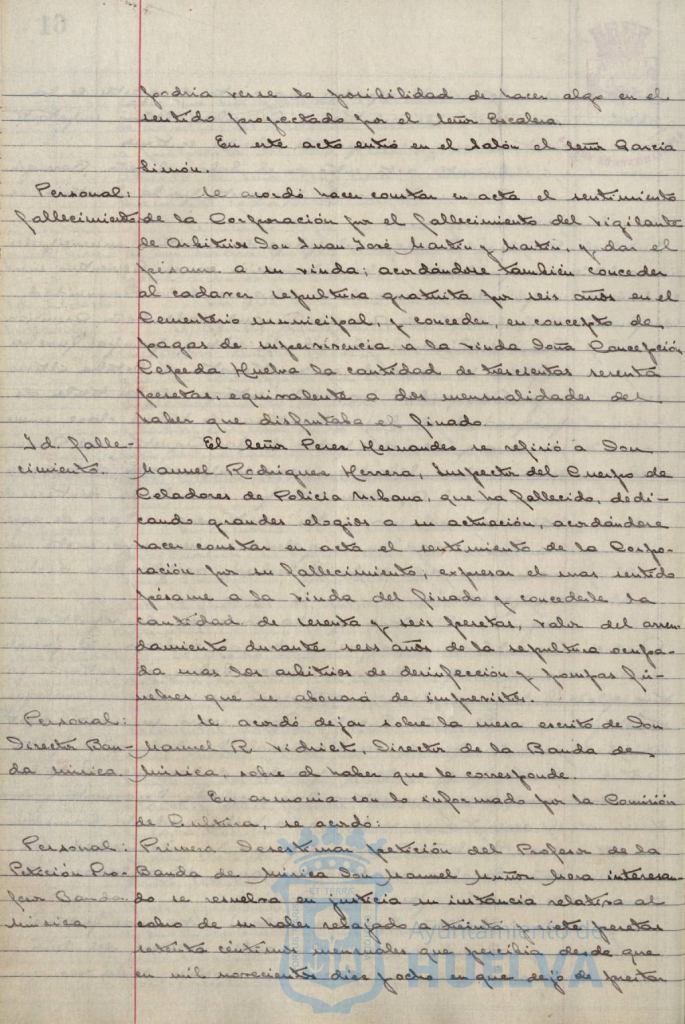 podría verse la posibilidad de hacer algo en el
sentido proyectado por el Señor Escalera.
En este acto entró en el Salón el Señor García
Limón.
Personal: Se acordó hacer constar en acta el sentimiento
fallecimiento de la Corporación por el fallecimiento del Vigilante
de Arbitrios Don Juan José Martín y Martín, y dar el
pésame a su viuda; acordándose también conceder
al cadaver sepultura gratuita por seis años en el
Cementerio municipal, y conceder, en concepto de
pagas de supervivencia a la viuda Doña Concepción
Cepeda Huelva la cantidad de trescientas sesenta
pesetas, equivalente a dos mensualidades del
haber que disfrutaba el finado.
Id. falle- El Señor Perez Hernandes se refirió a Don
cimiento. Manuel Rodriguez Herrera, Inspector del Cuerpo de
Celadores de Policía Urbana, que ha fallecido, dedi-
cando grandes elogios a su actuación, acordándose
hacer constar en acta el sentimiento de la Corpo-
ración por su fallecimiento, expresar el mas sentido
pésame a la viuda del finado y concederle la
cantidad de sesenta y seis pesetas, valor del arren-
damiento durante seis años de la sepultura ocupa-
da mas los arbitrios de desinfección y pompas fú-
nebres que se abonará de imprevistos.
Personal: Se acordó dejar sobre la mesa escrito de Don
Director Ban- Manuel R. Vidriet, Director de la Banda de
da música. Música, sobre el haber que le corresponde.
En armonia con lo informado por la Comisión
de Cultura, se acordó:
Personal: Primero Desestimar petición del Profesor de la
Petición Pro- Banda de Música Don Manuel Muñoz Mora interesan-
fesor Banda do se resuelva en justicia su instancia relativa al
música cobro de su haber rebajado a treinta y siete pesetas
setenta céntimos mensuales que percibia desde que
en mil novecientos diez y ocho en que dejó de prestar
ET TERRÆ
Ayuntamiento de
HUELVA